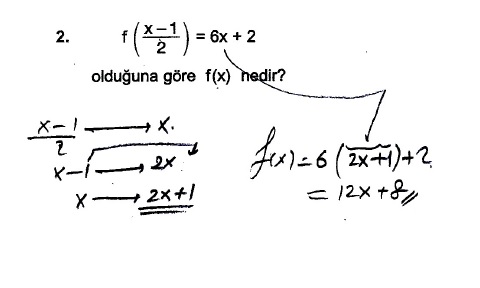 2. f(x-1/2) = 6x + 2
olduğuna göre f(x) nedir?
x-1/2 → x.
x-1 → 2x
x → 2x+1
f(x) = 6(2x+1)+2
= 12x+8//